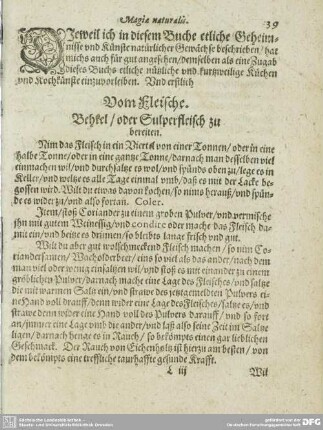 Magiæ naturalis. 39
Dieweil ich in diesem Buche etliche Geheim-
nisse vnd Künste natürlicher Gewächse beschrieben / hat
michs auch für gut angesehen / demselben als eine Zugab
dieses Buchs etliche nützliche vnd kurtzweilige Küchen
vnd Kochkünste einzuvorleiben. Vnd erstlich
Vom Fleische.
Behkel / oder Sulperfleisch zu
bereiten.
Nim das Fleisch in ein Viertel von einer Tonnen / oder in eine
halbe Tonne / oder in eine gantze Tonne / darnach man desselben viel
einmachen wil / vnd durchsaltze es wol / vnd spünds oben zu / lege es in
Keller / vnd weltze es alle Tage einmal vmb / daß es mit der Lacke be-
gossen wird. Wilt du etwas davon kochen / so nims herauß / vnd spün-
de es wider zu / vnd also fortan. Coler.
Item / stoß Coriander zu einem groben Pulver / vnd vermische
ihn mit gutem Weinessig / vnd condire oder mache das Fleisch da-
mit ein / vnd beitz es drinnen / so bleibts lange frisch vnd gut.
Wilt du aber gut wolschmeckend Fleisch machen / so nim Co-
riandersamen / Wacholderbeer / eins so viel als das ander / nach dem
man viel oder wenig einsaltzen wil / vnd stoß es mit einander zu einem
gröblichen Pulver / darnach mache eine Lage des Fleisches / saltze es
mit warmen Saltz ein / vnd strawe des jetztgemeldten Pulvers ei-
ne Hand voll drauff / denn wider eine Lage des Fleisches / saltze es / vnd
strawe denn wider eine Hand voll des Pulvers darauff / vnd so fort
an / immer eine Lage vmb die ander / vnd laß also seine Zeit im Saltze
ligen / darnach henge es in Rauch / so bekömpts einen gar lieblichen
Geschmack. Der Rauch von Eichenholtz ist hierzu am besten / von
dem bekömpts eine treffliche taurhaffte gesunde Krafft.
L iij Wil